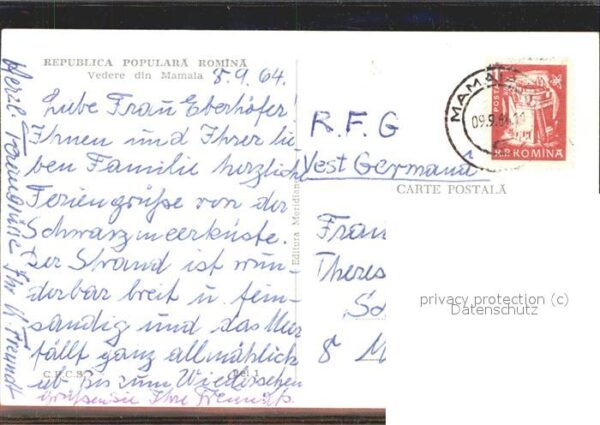 REPUBLICA POPULARĂ ROMÎNĂ
Vedere din Mamaia
8.9.64.
Liebe Frau Eberhöfer!
Ihnen und Ihrer lie
ben Familie herzlich
Feriengrüße von der
Schwarzmeerküste.
Der Strand ist wun-
derbar breit u. fein-
sandig und das Meer
fällt ganz allmählich
ab. Bis zum Wiedersehen
grüßen Sie Ihre
C.P.C.S.
Lei 1
Editura Meridiane
Herzl. Feriengrüße Ihr
MAMAIA
09.9.64
POSTA
R.P.ROMINA
R.F.G
West Germania
CARTE POSTALĂ
Frau
Theres
8 M
privacy protection (c)
Datenschutz